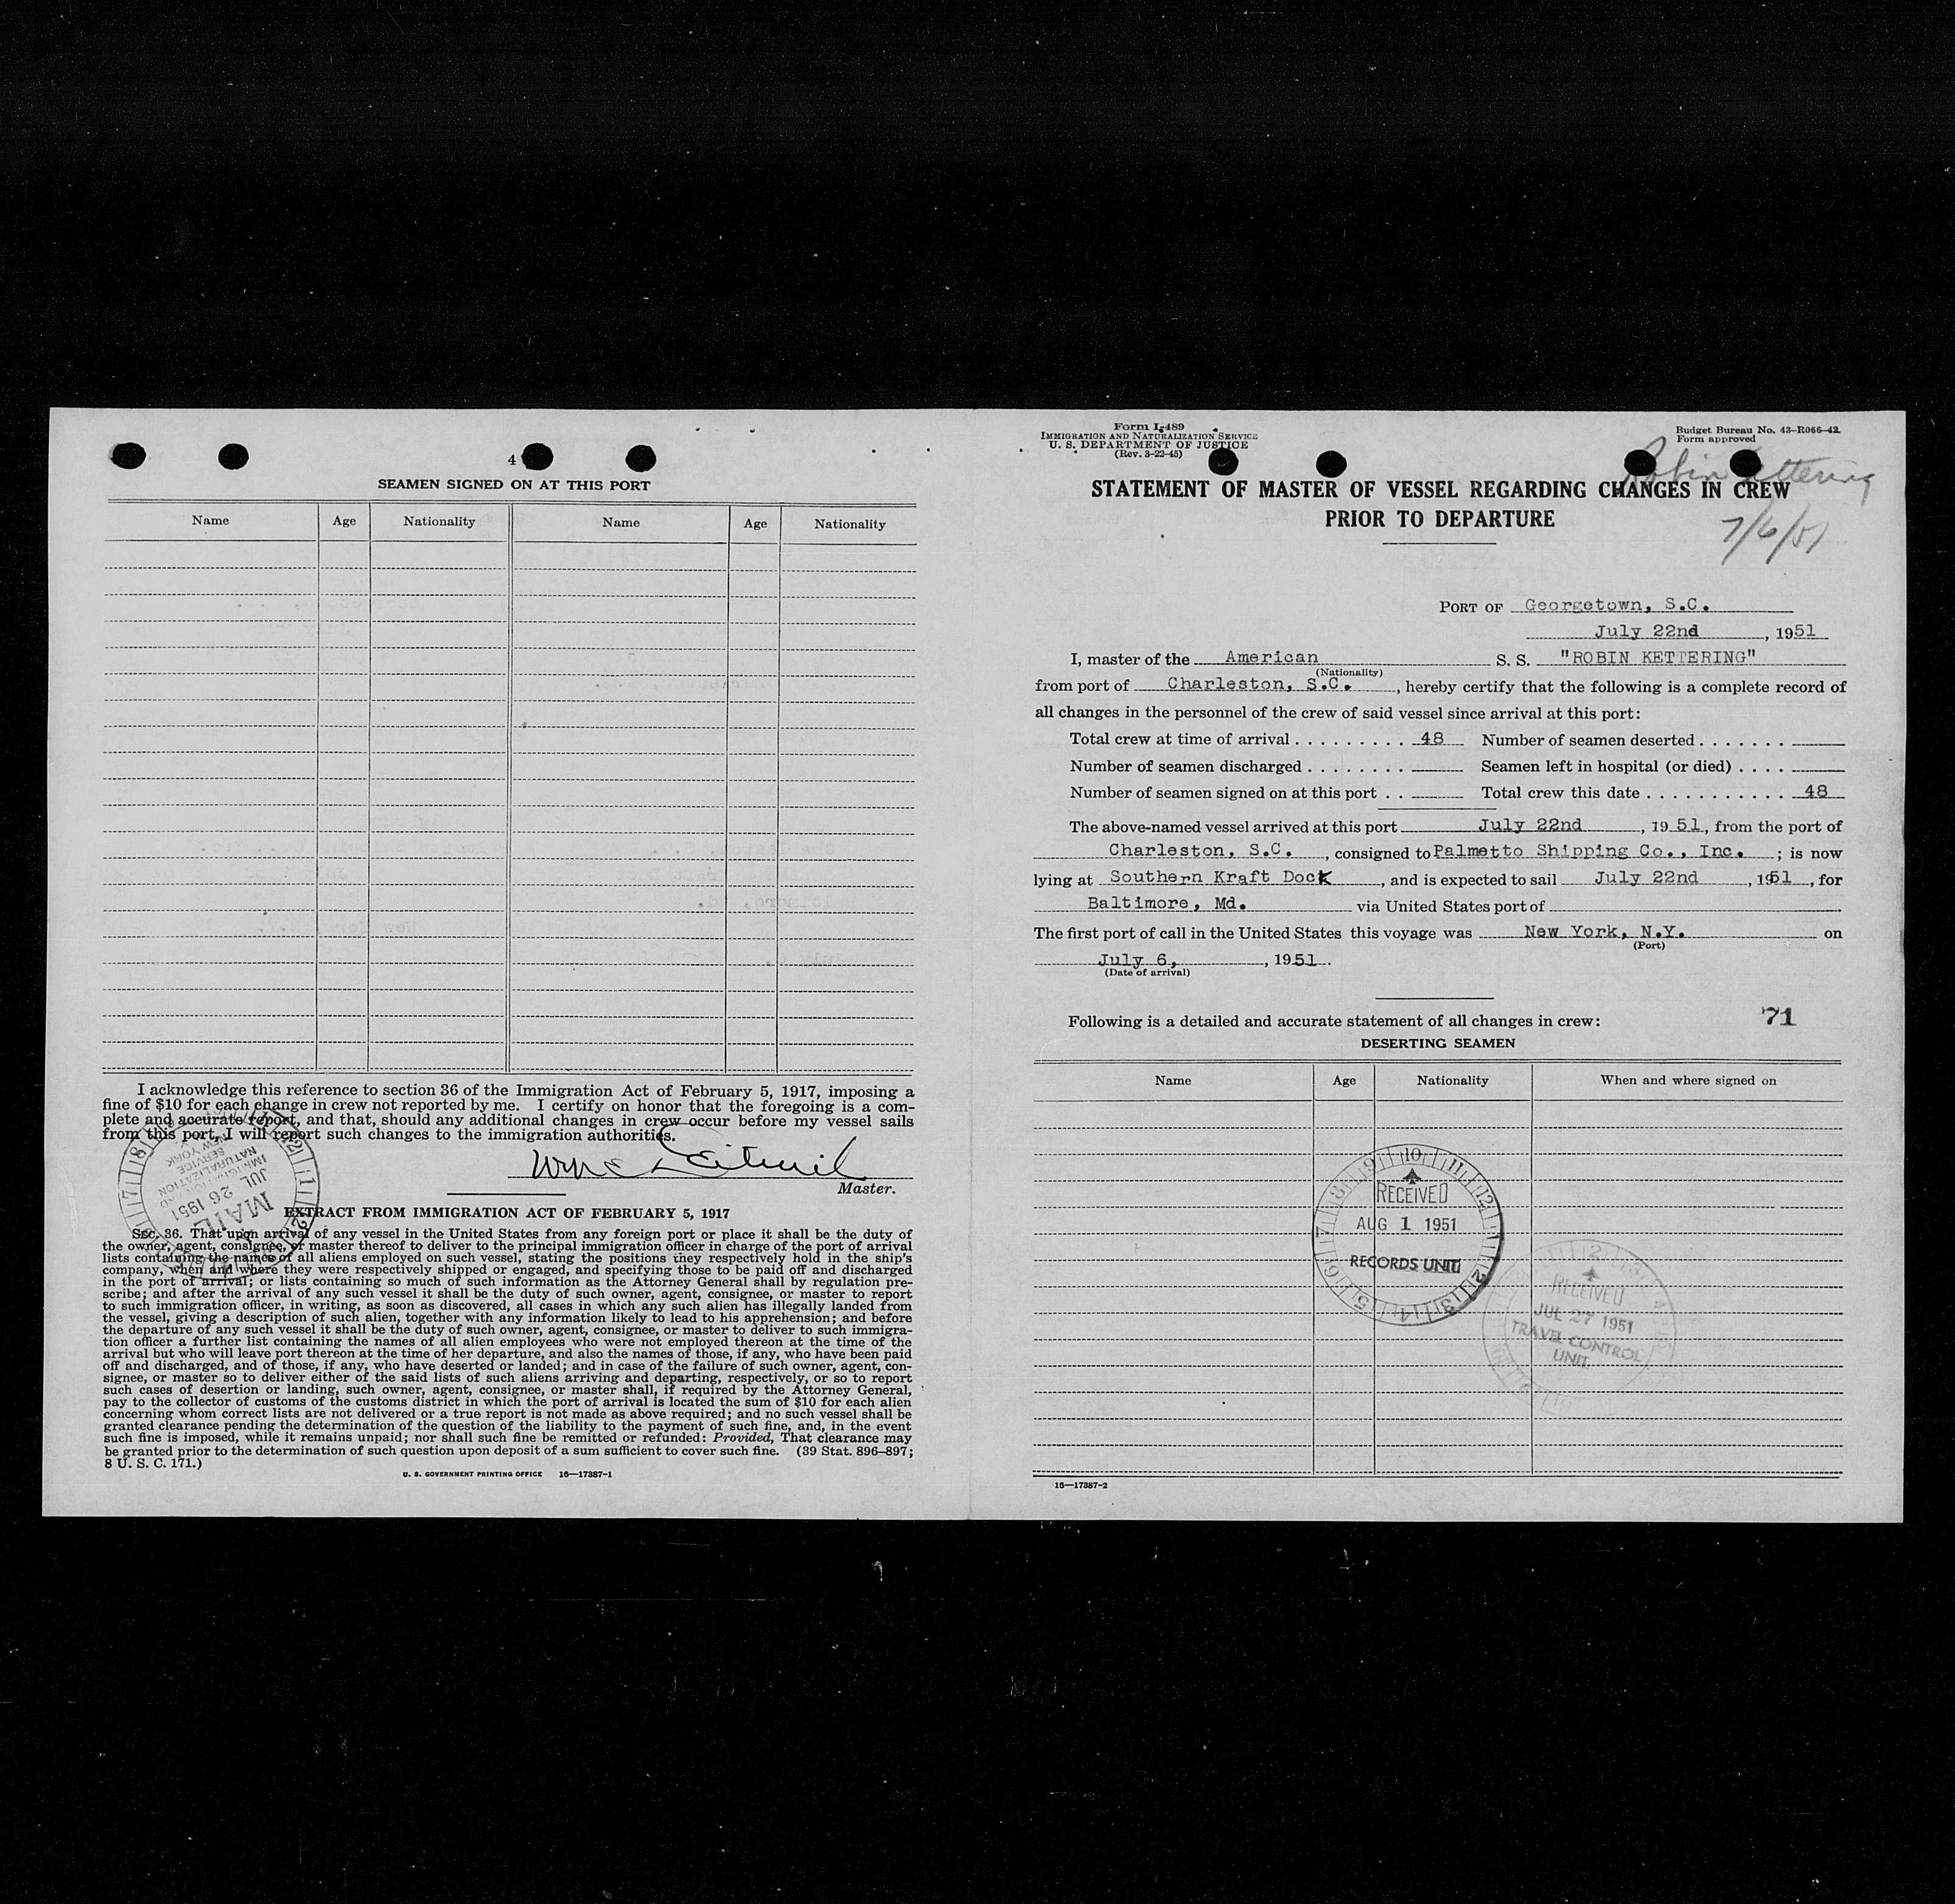 4
SEAMEN SIGNED ON AT THIS PORT
Name Age Nationality Name Age Nationality
I acknowledge this reference to section 36 of the Immigration Act of February 5, 1917, imposing a
fine of $10 for each change in crew not reported by me. I certify on honor that the foregoing is a com-
plete and accurate report, and that, should any additional changes in crew occur before my vessel sails
from this port, I will report such changes to the immigration authorities.
Master.
MAIL
JUL 26 1951
IMMIGRATION AND
NATURALIZATION
SERVICE
NEW YORK
EXTRACT FROM IMMIGRATION ACT OF FEBRUARY 5, 1917
SEC. 36. That upon arrival of any vessel in the United States from any foreign port or place it shall be the duty of
the owner, agent, consignee, or master thereof to deliver to the principal immigration officer in charge of the port of arrival
lists containing the names of all aliens employed on such vessel, stating the positions they respectively hold in the ship's
company, when and where they were respectively shipped or engaged, and specifying those to be paid off and discharged
in the port of arrival; or lists containing so much of such information as the Attorney General shall by regulation pre-
scribe; and after the arrival of any such vessel it shall be the duty of such owner, agent, consignee, or master to report
to such immigration officer, in writing, as soon as discovered, all cases in which any such alien has illegally landed from
the vessel, giving a description of such alien, together with any information likely to lead to his apprehension; and before
the departure of any such vessel it shall be the duty of such owner, agent, consignee, or master to deliver to such immigra-
tion officer a further list containing the names of all alien employees who were not employed thereon at the time of the
arrival but who will leave port thereon at the time of her departure, and also the names of those, if any, who have been paid
off and discharged, and of those, if any, who have deserted or landed; and in case of the failure of such owner, agent, con-
signee, or master so to deliver either of the said lists of such aliens arriving and departing, respectively, or so to report
such cases of desertion or landing, such owner, agent, consignee, or master shall, if required by the Attorney General,
pay to the collector of customs of the customs district in which the port of arrival is located the sum of $10 for each alien
concerning whom correct lists are not delivered or a true report is not made as above required; and no such vessel shall be
granted clearance pending the determination of the question of the liability to the payment of such fine, and, in the event
such fine is imposed, while it remains unpaid; nor shall such fine be remitted or refunded: Provided, That clearance may
be granted prior to the determination of such question upon deposit of a sum sufficient to cover such fine. (39 Stat. 896–897;
8 U. S. C. 171.)
U. S. GOVERNMENT PRINTING OFFICE 16—17387-1
Form I-489
IMMIGRATION AND NATURALIZATION SERVICE
U. S. DEPARTMENT OF JUSTICE
(Rev. 3-22-45)
Budget Bureau No. 43-R066-42.
Form approved
Robin Kettering
7/6/51
STATEMENT OF MASTER OF VESSEL REGARDING CHANGES IN CREW
PRIOR TO DEPARTURE
PORT OF Georgetown, S.C.
July 22nd, 1951
I, master of the American S. S. "ROBIN KETTERING"
(Nationality)
from port of Charleston, S.C., hereby certify that the following is a complete record of
all changes in the personnel of the crew of said vessel since arrival at this port:
Total crew at time of arrival . . . . . . . . . 48 Number of seamen deserted . . . . . . .
Number of seamen discharged . . . . . . . . Seamen left in hospital (or died) . . . .
Number of seamen signed on at this port . . Total crew this date . . . . . . . . . . . 48
The above-named vessel arrived at this port July 22nd, 1951, from the port of
Charleston, S.C., consigned to Palmetto Shipping Co., Inc. ; is now
lying at Southern Kraft Dock, and is expected to sail July 22nd, 1951, for
Baltimore, Md. via United States port of
The first port of call in the United States this voyage was New York, N.Y. on
(Port)
July 6, , 1951.
(Date of arrival)
Following is a detailed and accurate statement of all changes in crew: 71
DESERTING SEAMEN
Name Age Nationality When and where signed on
RECEIVED
AUG 1 1951
RECORDS UNIT
RECEIVED
JUL 27 1951
TRAVEL CONTROL
UNIT
16—17387-2